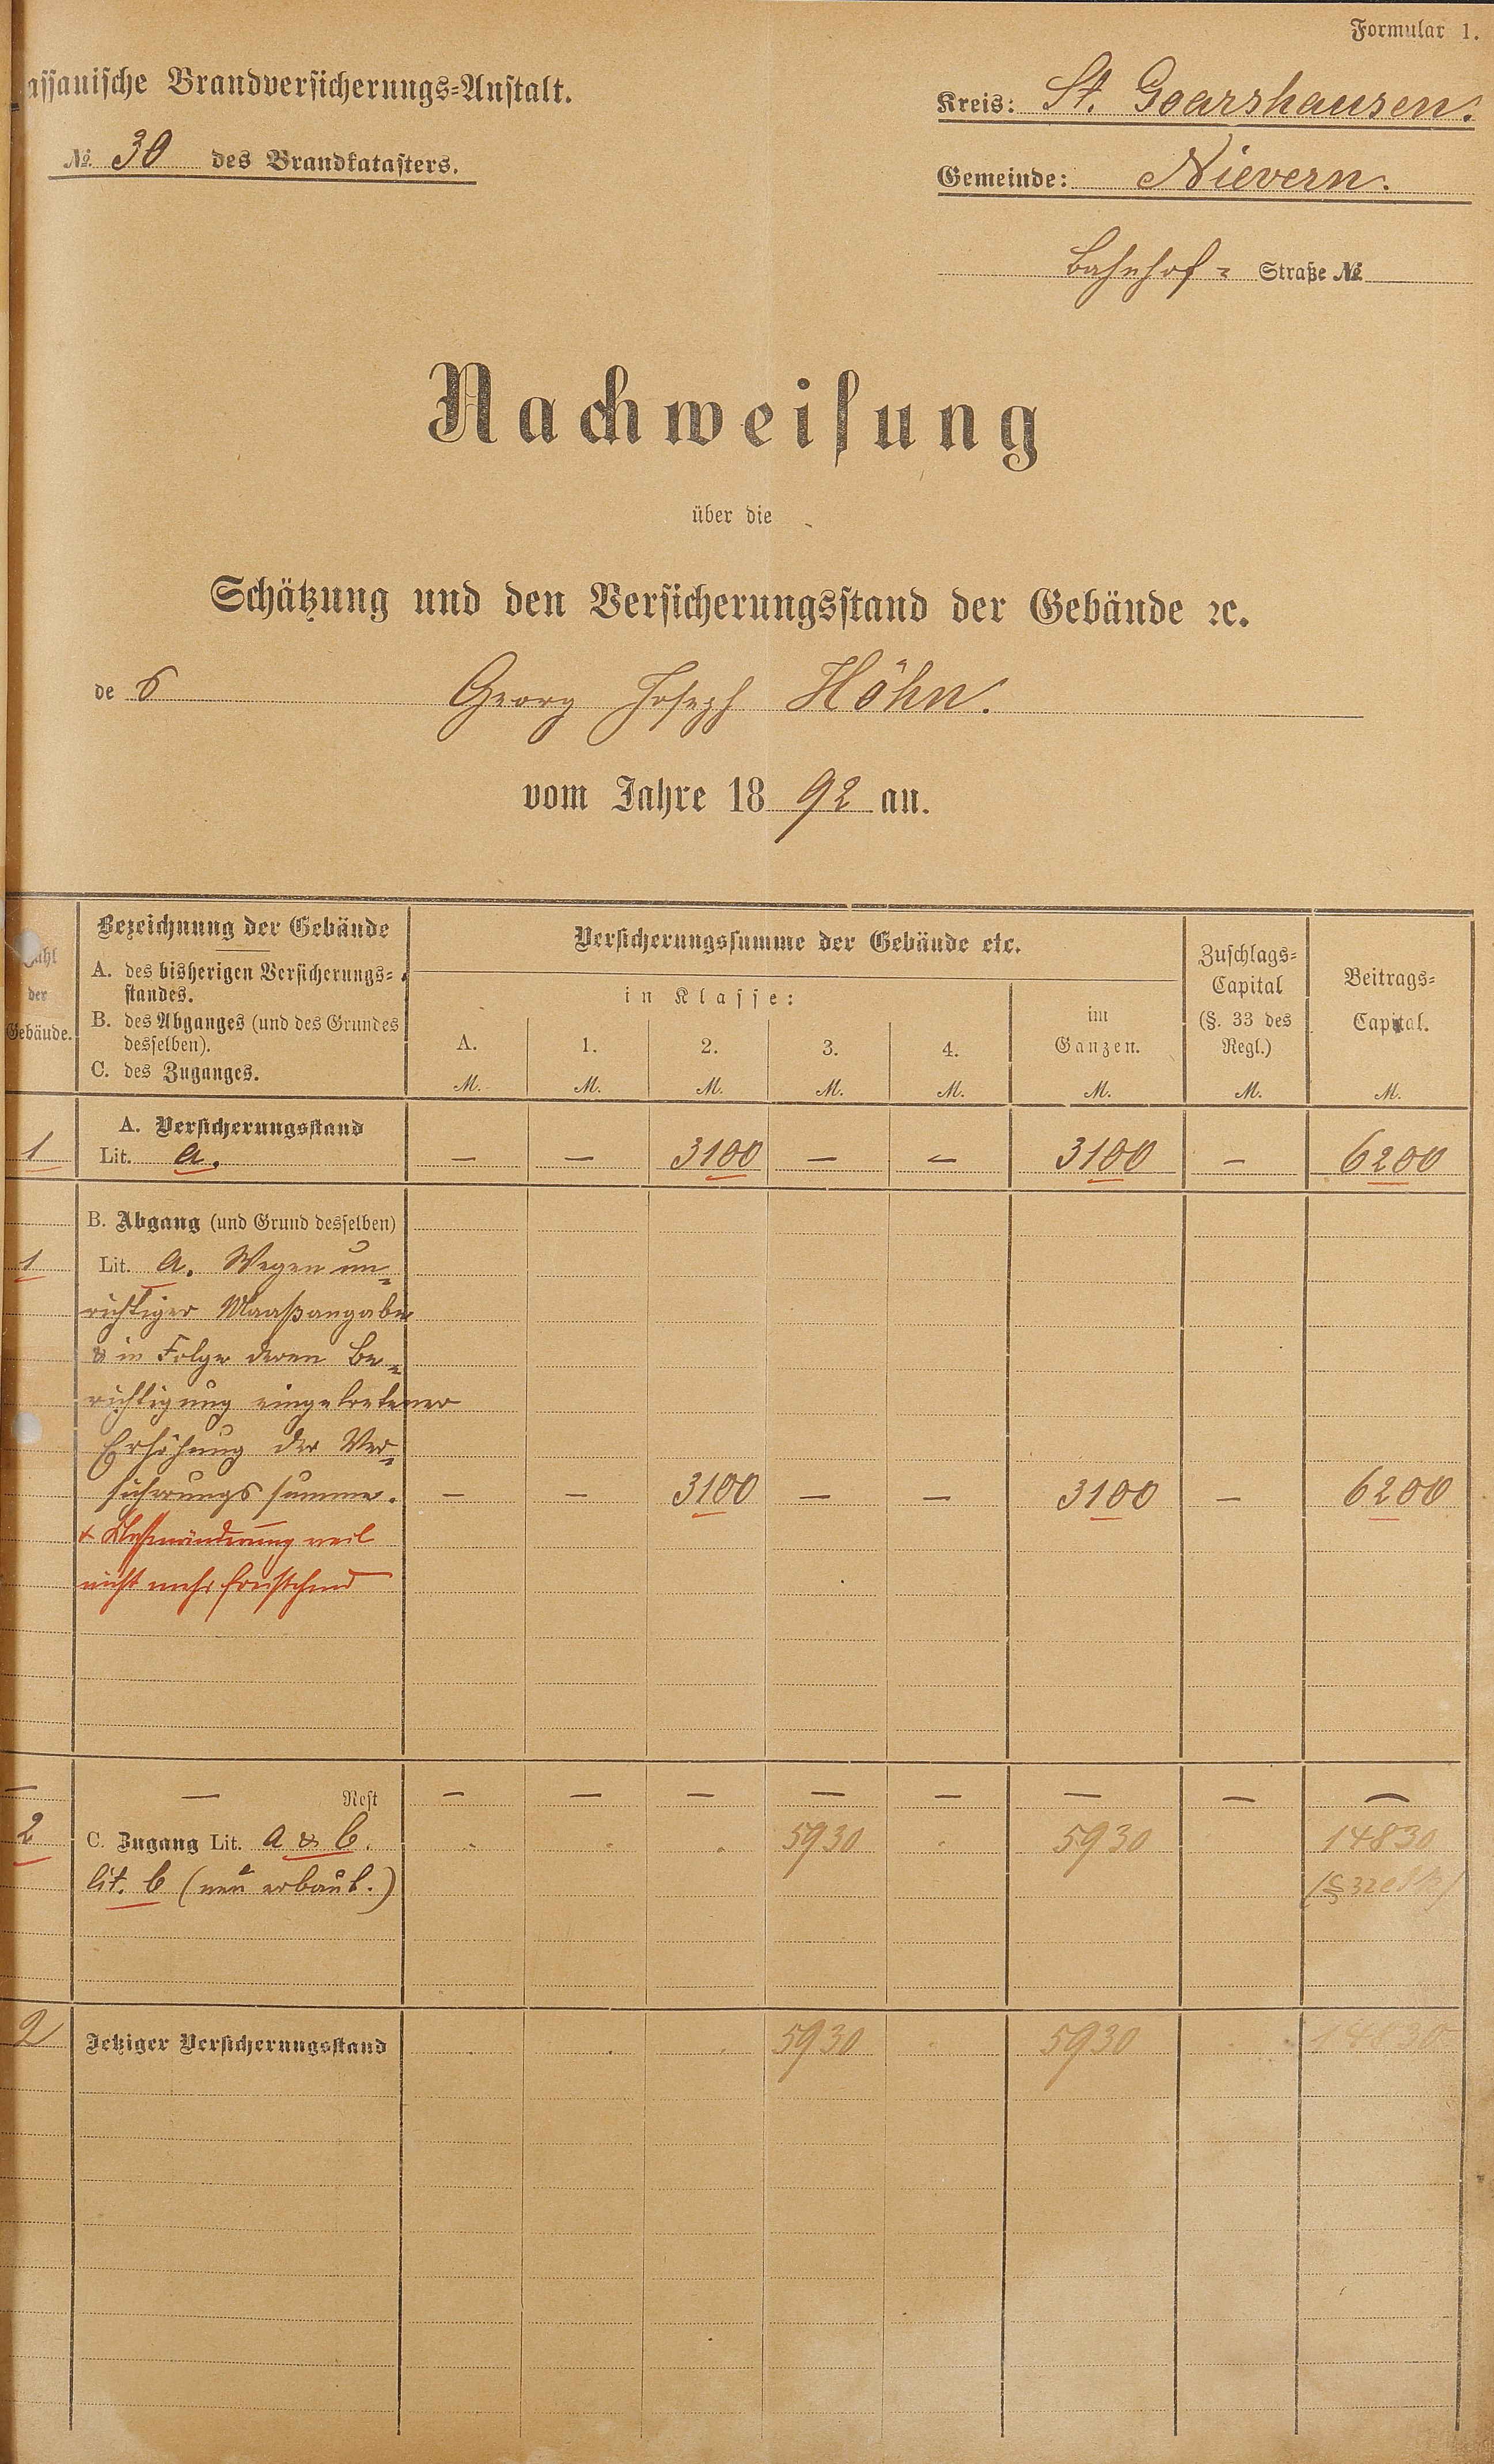 Formular 1.
assauische Brandversicherungs-Anstalt.
Kreis: St. Goarshausen.
№ 30 des Brandkatasters.
Gemeinde: Nievern.
Bahnhof- Straße №
Nachweisung
über die
Schätzung und den Versicherungsstand der Gebäude ꝛc.
de s Georg Joseph Höhn.
vom Jahre 18 92 an.
Zahl der Gebäude.
Bezeichnung der Gebäude
A. des bisherigen Versicherungs-
standes.
B. des Abganges (und des Grundes
desselben).
C. des Zuganges.
Versicherungssumme der Gebäude etc.
in Klasse:
A. 1. 2. 3. 4.
im
Ganzen.
Zuschlags-
Capital
(§. 33 des
Regl.)
Beitrags-
Capital.
M. M. M. M. M. M. M. M.
A. Versicherungsstand
1 Lit. a. — — 3100 — — 3100 — 6200
B. Abgang (und Grund desselben)
1 Lit. a. Wegen un-
richtiger Maaßangabe
& in Folge deren Be-
richtigung eingetretener
Erhöhung der Ver-
sicherungssumme. — — 3100 — — 3100 — 6200
& Klassenänderung weil
nicht mehr freistehend
— — Rest — — — — — — — —
2 C. Zugang Lit. a & b. . . . 5930 . 5930 14830
lit. b (neu erbaut.) (§ 32
2 Jetziger Versicherungsstand . . . 5930 . 5930 . 14830